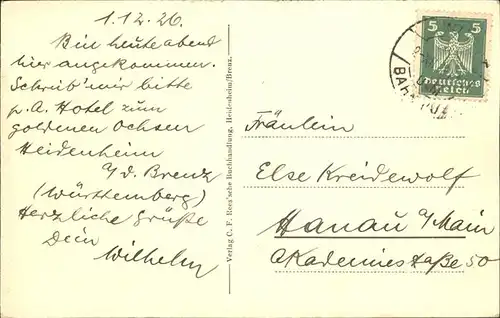 1.12.26.
Bin heute abend
hier angekommen.
Schreib' mir bitte
p.A. Hotel zum
goldenen Ochsen
Heidenheim
a/d. Brenz
(Württemberg)
Herzliche Grüße
Dein
Wilhelm
Verlag C. F. Rees'sche Buchhandlung, Heidenheim/Brenz.
5 5
Deutsches
Reich
BAH
Fräulein
Else Kreidewolf
Hanau a/Main
Akademiestaße 50